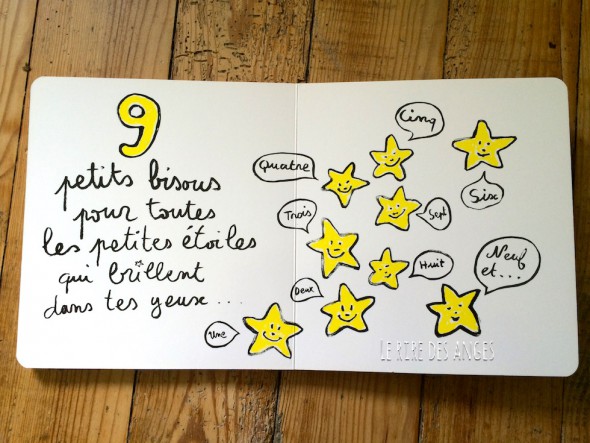 9
petits bisous
pour toutes
les petites étoiles
qui brillent
dans tes yeux ...
Une
Deux
Trois
Quatre
Cinq
Six
Sept
Huit
Neuf
et...
LE RIRE DES ANGES